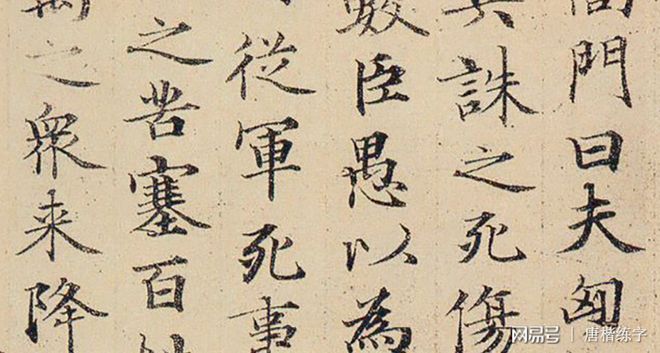 高門曰夫匈
兵誅之死傷
數臣愚以為
從軍死事
之苦塞百
萬之眾来降
网易号 | 唐楷练字